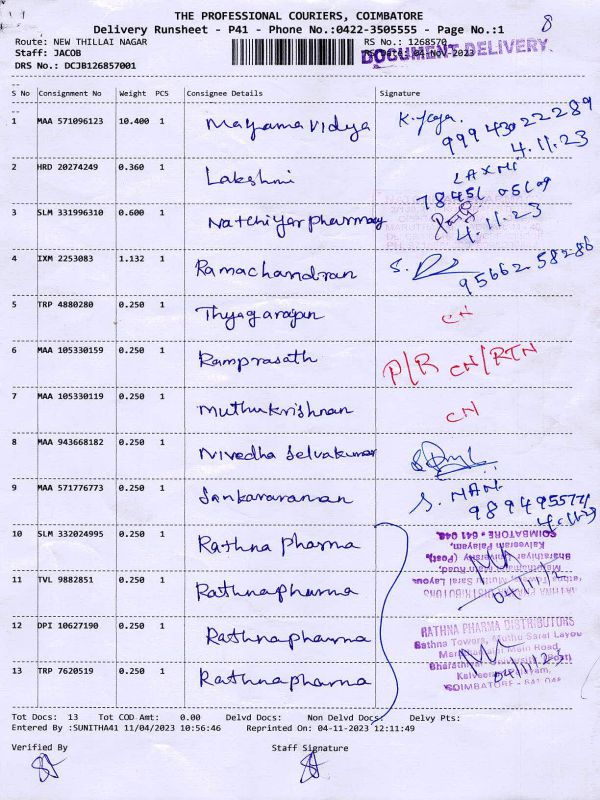 THE PROFESSIONAL COURIERS, COIMBATORE
8
Delivery Runsheet - P41 - Phone No.:0422-3505555 - Page No.:1
Route: NEW THILLAI NAGAR RS No.: 1268570
Staff: JACOB 04-Nov-2023
DOCUMENT DELIVERY
DRS No.: DCJB126857001
S No Consignment No Weight PCS Consignee Details Signature
1 MAA 571096123 10.400 1 Mayama vidya K. 99943022289
4.11.23
2 HRD 20274249 0.360 1 Lakshmi LAXMI
3 SLM 331996310 0.600 1 Natchiyar pharmacy
4.11.23
4 IXM 2253083 1.132 1 Ramachandran S. 95662 58286
5 TRP 4880280 0.250 1 Thyagarajan CN
6 MAA 105330159 0.250 1 Ramprasath P/R CN/RTN
7 MAA 105330119 0.250 1 Muthukrishnan CN
8 MAA 943668182 0.250 1 Nivedha Selvakumar
9 MAA 571776773 0.250 1 Sankararaman S. MANI
4.11.23
10 SLM 332024995 0.250 1 Rathna pharma
COIMBATORE - 641 046.
Kalveeran Palayam,
Bharathiar University (Post),
11 TVL 9882851 0.250 1 Rathna pharma
04/11/23
12 DPI 10627190 0.250 1 Rathna pharma
RATHNA PHARMA DISTRIBUTORS
Rathna Towers, Muthu Saral Layou
Main Road,
Bharathiar University (Post)
Kalveeran Palayam,
COIMBATORE - 641 046
04/11/23
13 TRP 7620519 0.250 1 Rathna pharma
Tot Docs: 13 Tot COD Amt: 0.00 Delvd Docs: Non Delvd Docs: Delvy Pts:
Entered By :SUNITHA41 11/04/2023 10:56:46 Reprinted On: 04-11-2023 12:11:49
Verified By Staff Signature